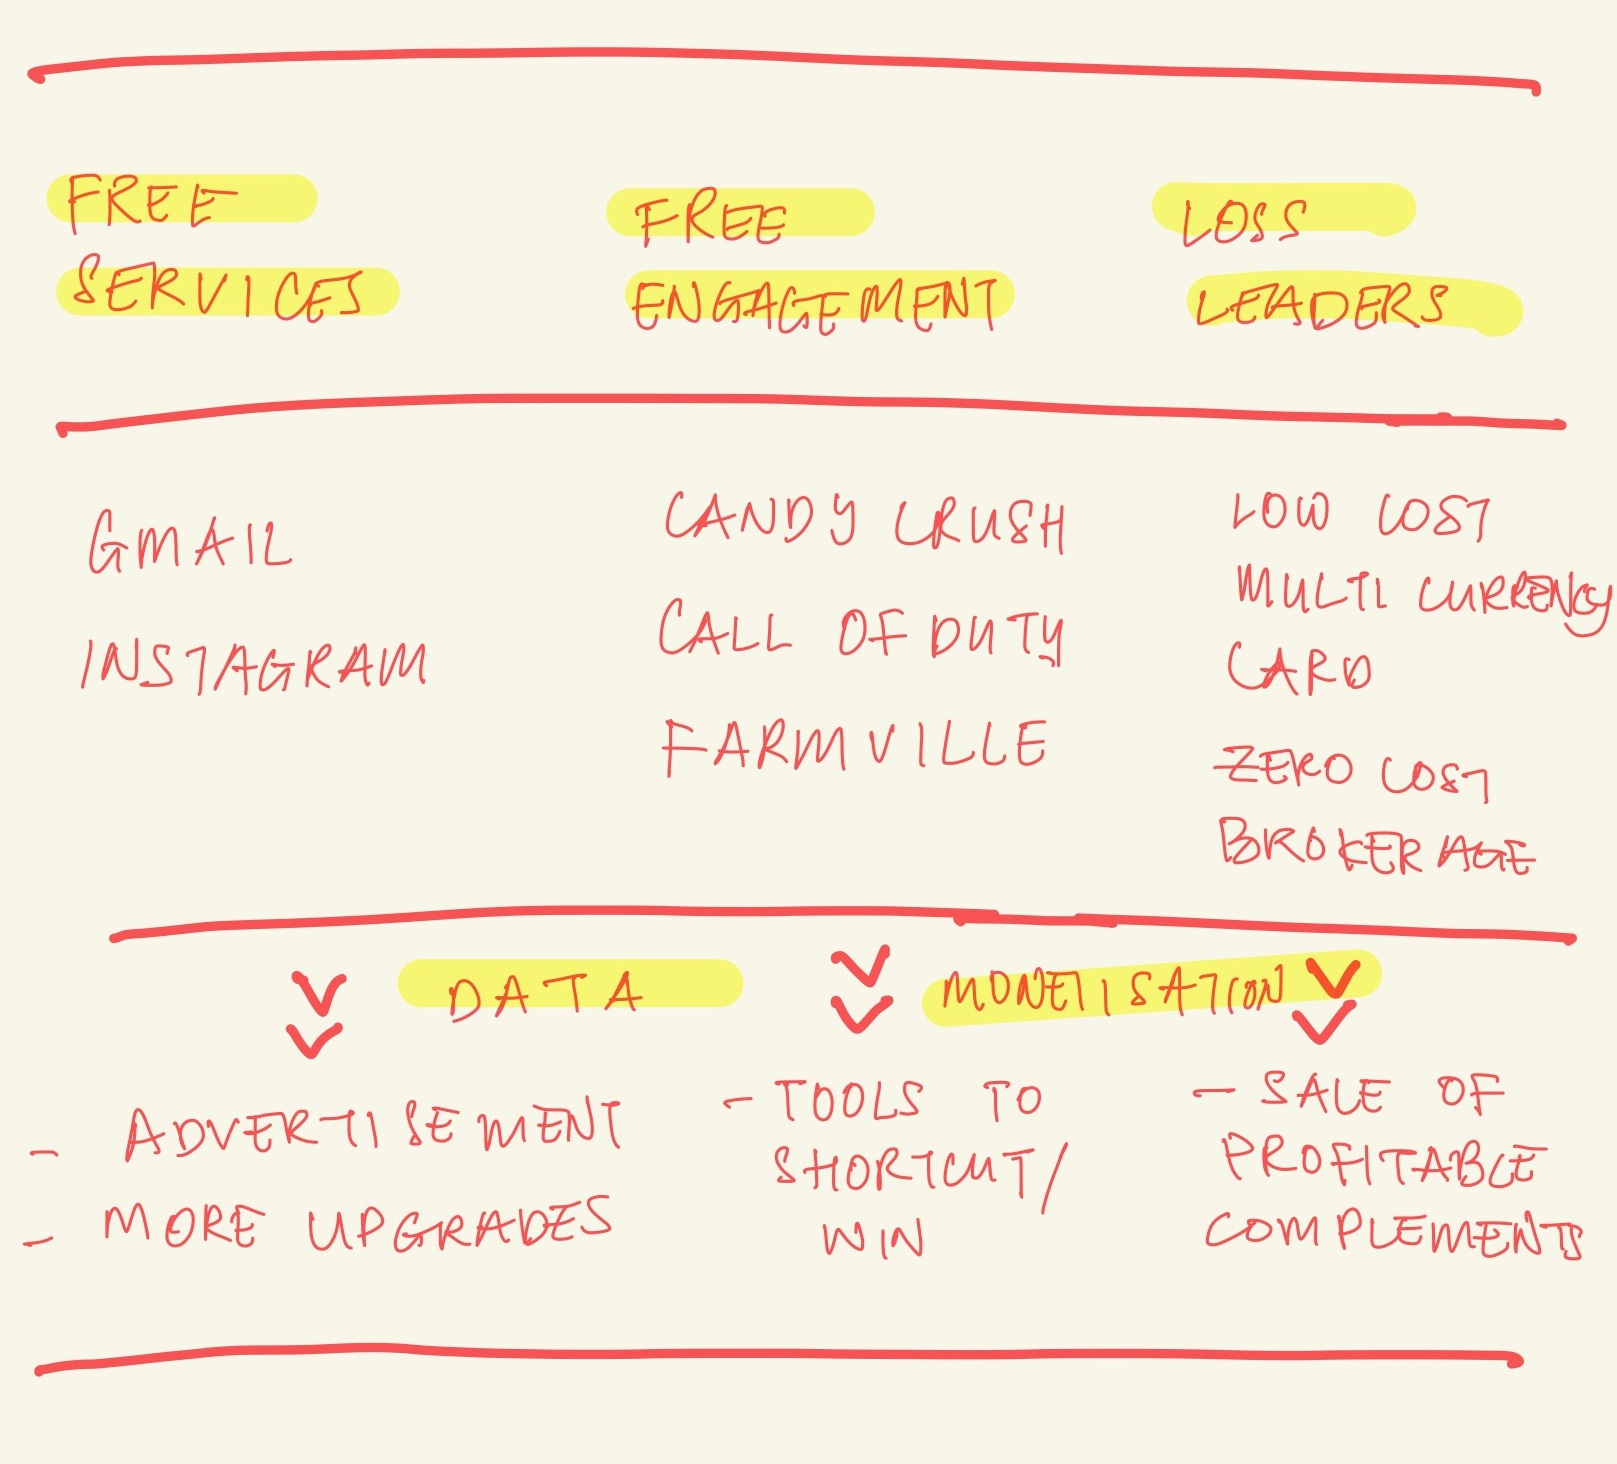 FREE
SERVICES
FREE
ENGAGEMENT
LOSS
LEADERS
GMAIL
INSTAGRAM
CANDY CRUSH
CALL OF DUTY
FARMVILLE
LOW COST
MULTI CURRENCY
CARD
ZERO COST
BROKERAGE
DATA
MONETISATION
- ADVERTISEMENT
- MORE UPGRADES
- TOOLS TO
SHORTCUT/
WIN
- SALE OF
PROFITABLE
COMPLEMENTS